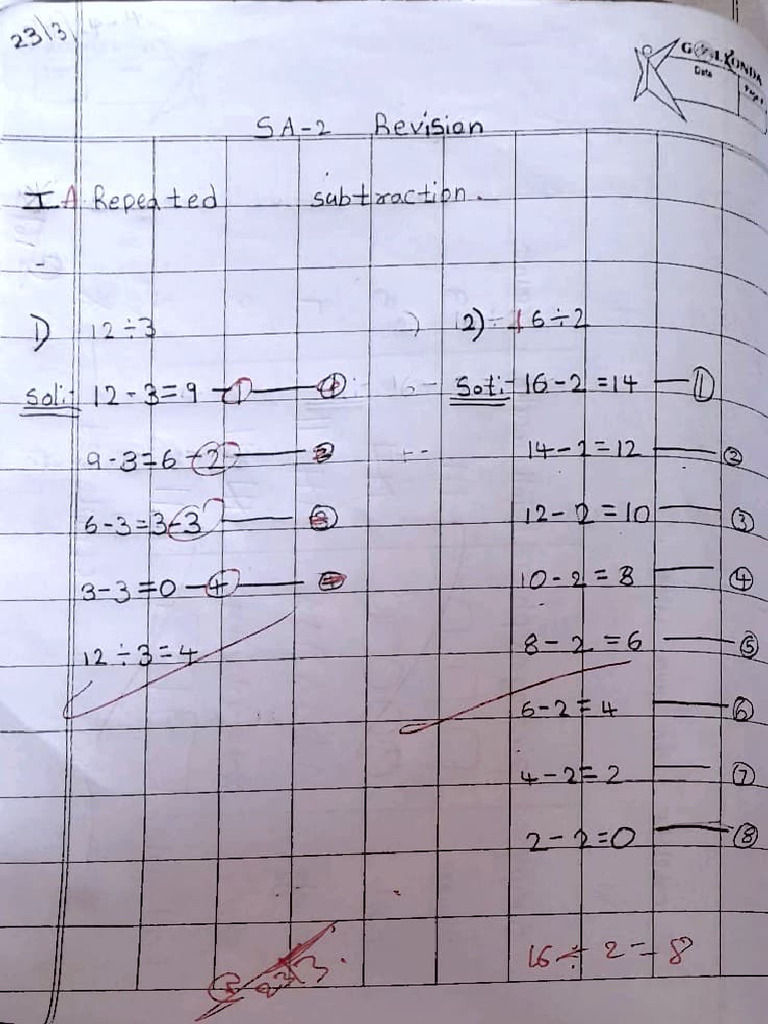 23/3
GOLKONDA
Date
Page
SA-2 Revision
I A Repeated subtraction.
1) 12÷3
Sol:- 12-3=9 -1 — 1
9-3=6 -2 — 2
6-3=3 -3 — 3
3-3=0 -4 — 4
12÷3=4
2) 16÷2
Sol:- 16-2=14 — 1
14-2=12 — 2
12-2=10 — 3
10-2=8 — 4
8-2=6 — 5
6-2=4 — 6
4-2=2 — 7
2-2=0 — 8
16÷2=8